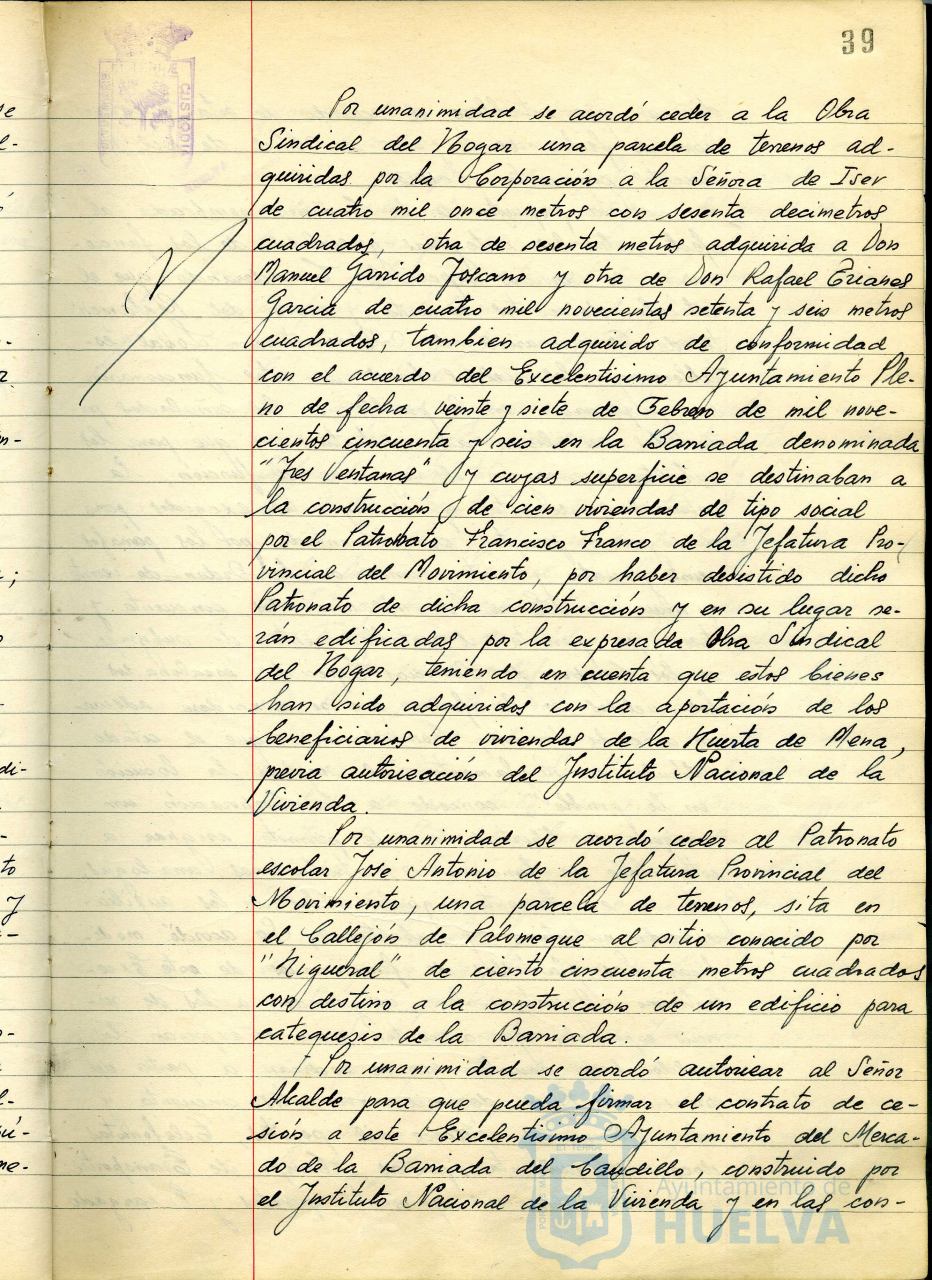 39
Por unanimidad se acordó ceder a la Obra
Sindical del Hogar una parcela de terrenos ad-
quiridas por la Corporación a la Señora de Iser
de cuatro mil once metros con sesenta decimetros
cuadrados, otra de sesenta metros adquirida a Don
Manuel Garrido Toscano y otra de Don Rafael
Garcia de cuatro mil novecientas setenta y seis metros
cuadrados, tambien adquirido de conformidad
con el acuerdo del Excelentisimo Ayuntamiento Ple-
no de fecha veinte y siete de Febrero de mil nove-
cientos cincuenta y seis en la Barriada denominada
"Tres Ventanas" y cuyas superficie se destinaban a
la construcción de cien viviendas de tipo social
por el Patrobato Francisco Franco de la Jefatura Pro-
vincial del Movimiento, por haber desistido dicho
Patronato de dicha construcción y en su lugar se-
rán edificadas por la expresada Obra Sindical
del Hogar, teniendo en cuenta que estos bienes
han sido adquiridos con la aportación de los
beneficiarios de viviendas de la Huerta de Mena,
previa autorización del Instituto Nacional de la
Vivienda.
Por unanimidad se acordó ceder al Patronato
escolar José Antonio de la Jefatura Provincial del
Movimiento, una parcela de terrenos, sita en
el Callejón de Palomeque al sitio conocido por
"Higueral" de ciento cincuenta metros cuadrados
con destino a la construcción de un edificio para
catequesis de la Barriada.
Por unanimidad se acordó autorizar al Señor
Alcalde para que pueda firmar el contrato de ce-
sión a este Excelentisimo Ayuntamiento del Merca-
do de la Barriada del Caudillo, construido por
el Instituto Nacional de la Vivienda y en las con-
Ayuntamiento de
HUELVA